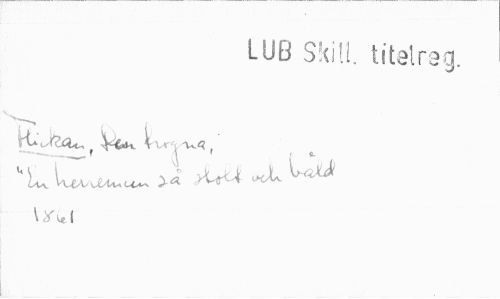 LUB Skill. titelreg.
Flickan, Den trogna,
"En herreman så stolt och båld
1861